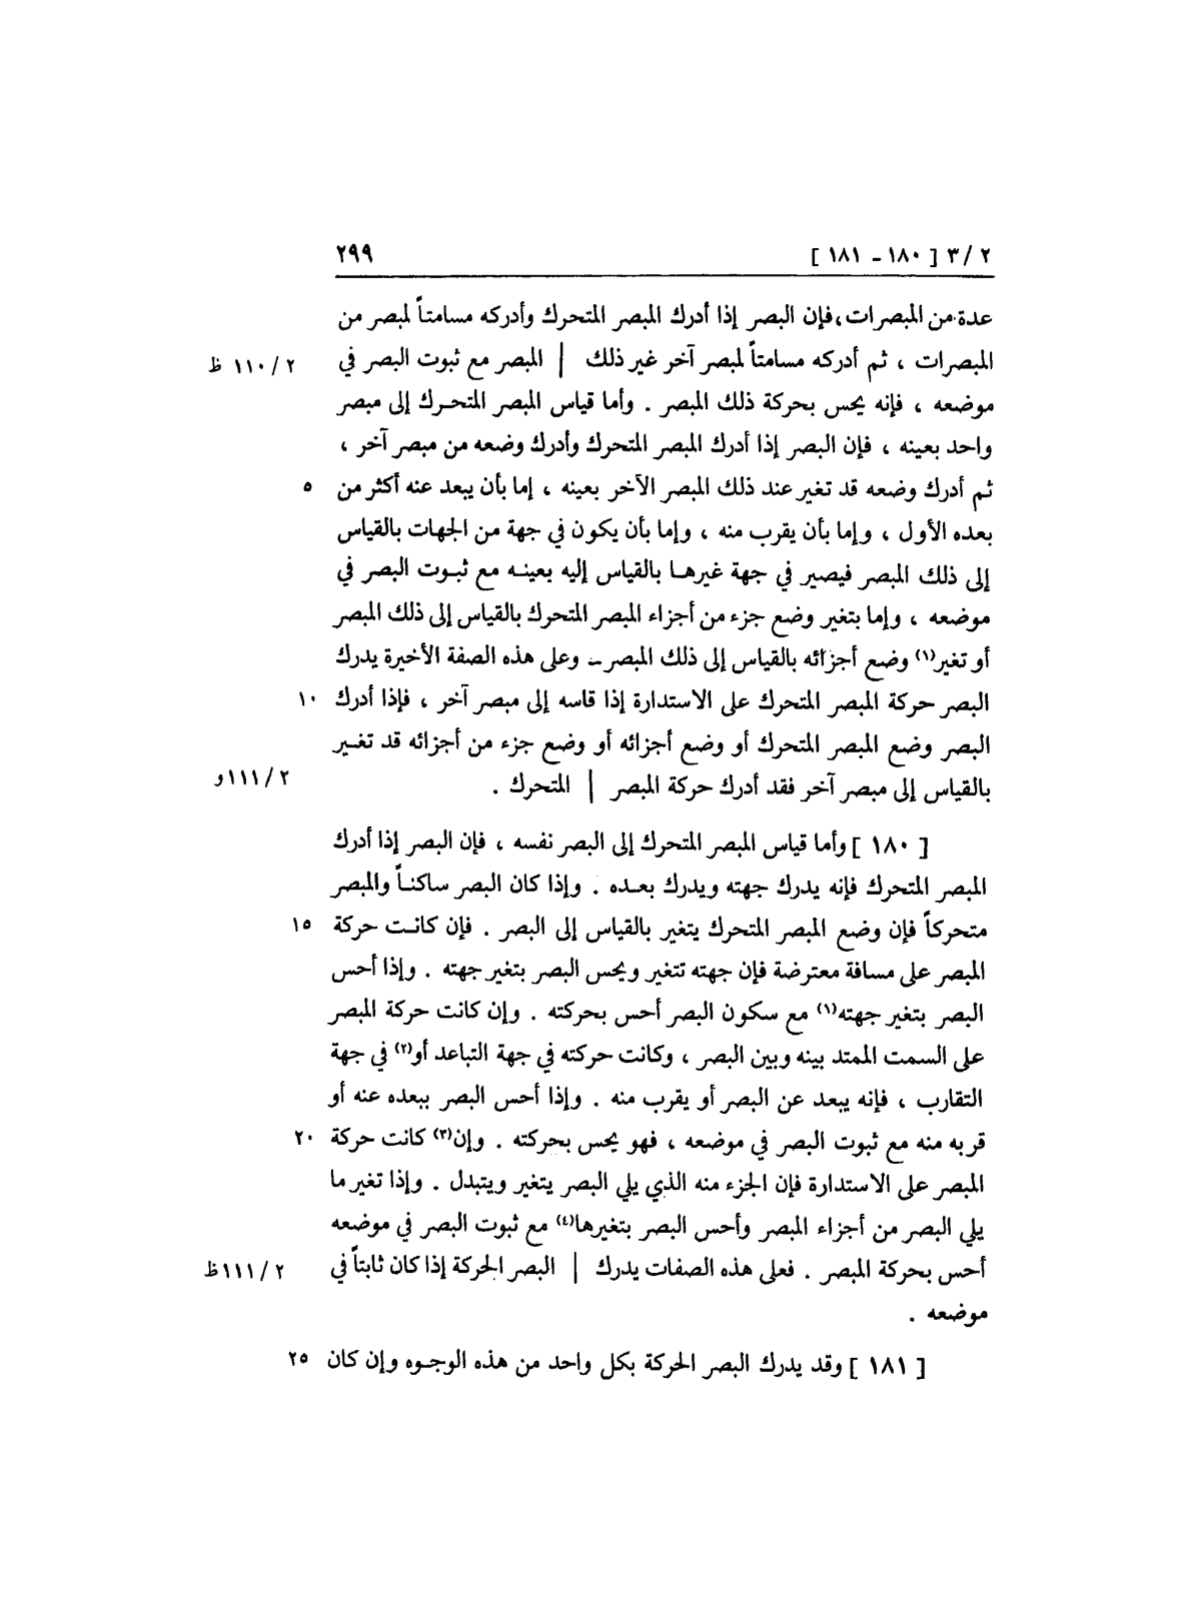 ٢ /٣ [ ١٨٠ - ١٨١ ] ٢٩٩
عدة من المبصرات، فإن البصر إذا أدرك المبصر المتحرك وأدركه مسامتاً لمبصر من
المبصرات ، ثم أدركه مسامتاً لمبصر آخر غير ذلك | المبصر مع ثبوت البصر في ٢ /١١٠ ظ
موضعه ، فإنه يحس بحركة ذلك المبصر . وأما قياس المبصر المتحرك إلى مبصر
واحد بعينه ، فإن البصر إذا أدرك المبصر المتحرك وأدرك وضعه من مبصر آخر ،
ثم أدرك وضعه قد تغير عند ذلك المبصر الآخر بعينه ، إما بأن يبعد عنه أكثر من ٥
بعده الأول ، وإما بأن يقرب منه ، وإما بأن يكون في جهة من الجهات بالقياس
إلى ذلك المبصر فيصير في جهة غيرها بالقياس إليه بعينه مع ثبوت البصر في
موضعه ، وإما بتغير وضع جزء من أجزاء المبصر المتحرك بالقياس إلى ذلك المبصر
أو تغير(١) وضع أجزائه بالقياس إلى ذلك المبصر - وعلى هذه الصفة الأخيرة يدرك
البصر حركة المبصر المتحرك على الاستدارة إذا قاسه إلى مبصر آخر ، فإذا أدرك ١٠
البصر وضع المبصر المتحرك أو وضع أجزائه أو وضع جزء من أجزائه قد تغير
بالقياس إلى مبصر آخر فقد أدرك حركة المبصر | المتحرك . ٢ /١١١و
[ ١٨٠ ] وأما قياس المبصر المتحرك إلى البصر نفسه ، فإن البصر إذا أدرك
المبصر المتحرك فإنه يدرك جهته ويدرك بعده . وإذا كان البصر ساكناً والمبصر
متحركاً فإن وضع المبصر المتحرك يتغير بالقياس إلى البصر . فإن كانت حركة ١٥
المبصر على مسافة معترضة فإن جهته تتغير ويحس البصر بتغير جهته . وإذا أحس
البصر بتغير جهته(١) مع سكون البصر أحس بحركته . وإن كانت حركة المبصر
على السمت الممتد بينه وبين البصر ، وكانت حركته في جهة التباعد أو(٢) في جهة
التقارب ، فإنه يبعد عن البصر أو يقرب منه . وإذا أحس البصر ببعده عنه أو
قربه منه مع ثبوت البصر في موضعه ، فهو يحس بحركته . وإن(٣) كانت حركة ٢٠
المبصر على الاستدارة فإن الجزء منه الذي يلي البصر يتغير ويتبدل . وإذا تغير ما
يلي البصر من أجزاء المبصر وأحس البصر بتغيرها(٤) مع ثبوت البصر في موضعه
أحس بحركة المبصر . فعلى هذه الصفات يدرك | البصر الحركة إذا كان ثابتاً في ٢ /١١١ظ
موضعه .
[ ١٨١ ] وقد يدرك البصر الحركة بكل واحد من هذه الوجوه وإن كان ٢٥